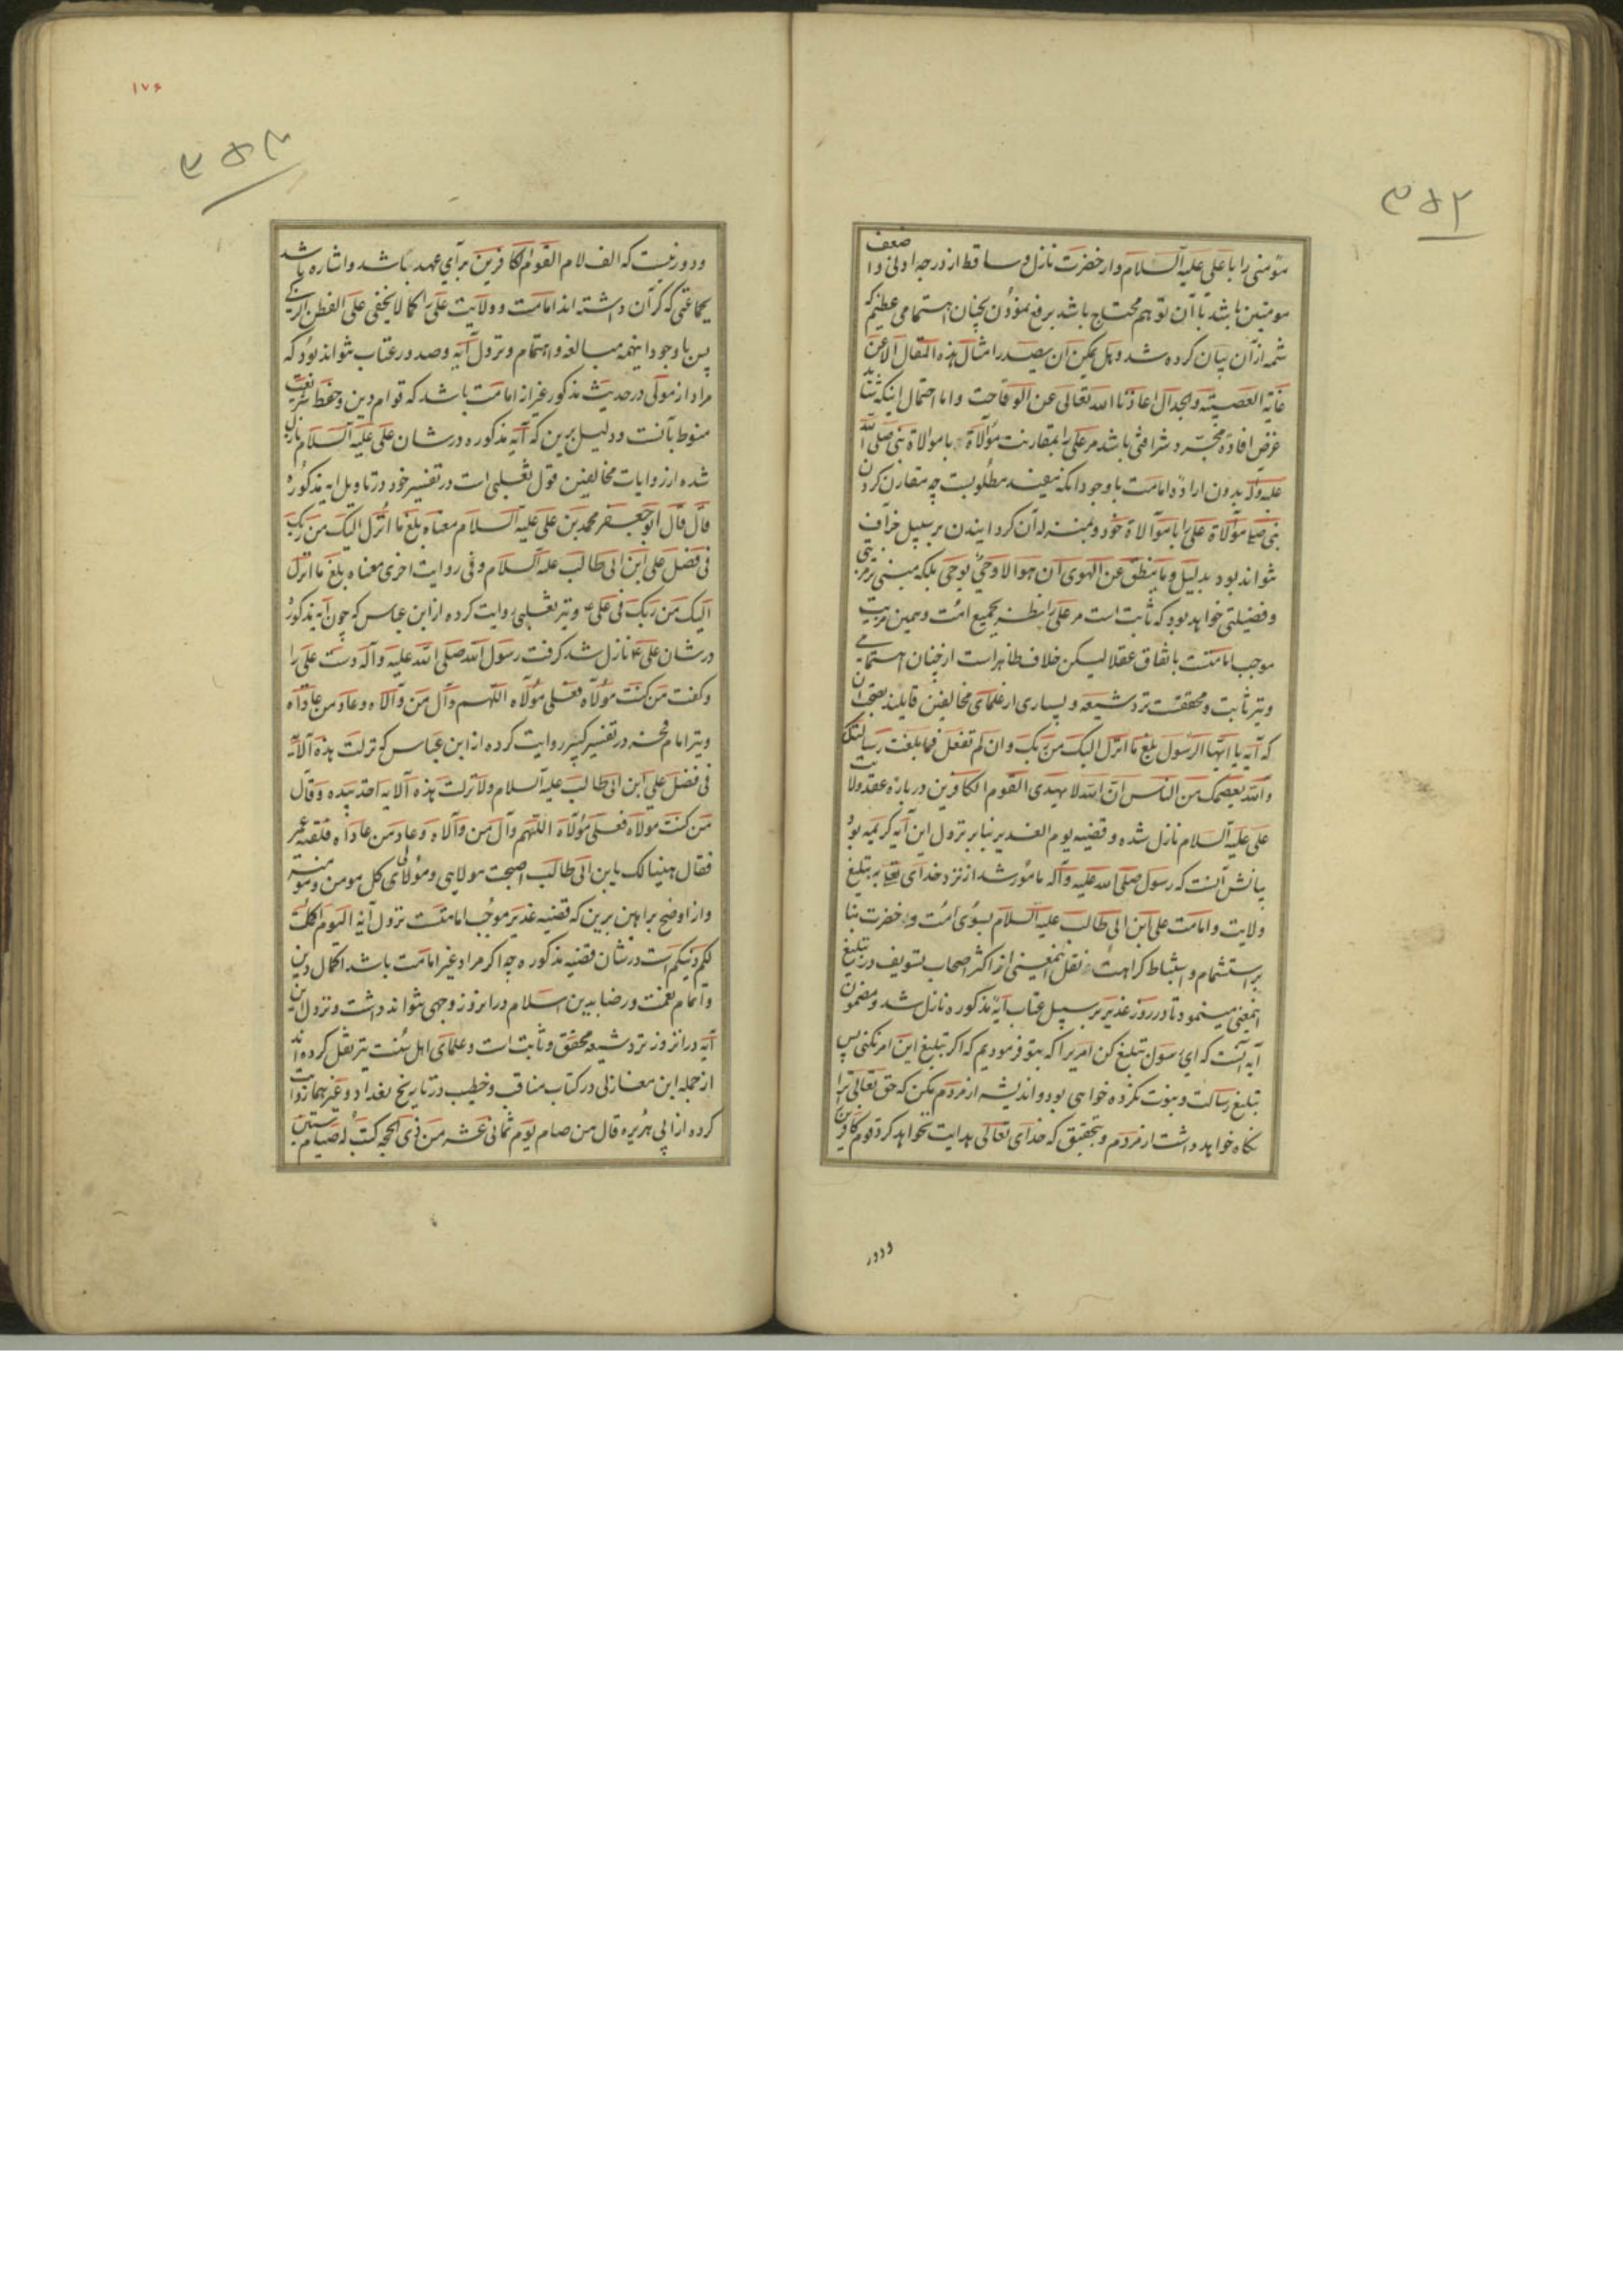 ۳۵۲
مؤمنی را با علی علیه السلام و از حضرت نازل و ساقط از درجه ادنی و اضعف
مومنین باشد تا آن توهم محتاج باشد برفع نمودن بچنان اهتمامی عظیم که
شمه از آن بیان کرده شد و هل یمکن ان یصدر امثال هذه المقال الا عن
غایة العصبیة و الجدال اعاذنا الله تعالی عن الوقاحت و اما احتمال اینکه شاید
غرض افاده مجرد شرافتی باشد مر علی را بمقارنت موالاة با موالاة نبی صلی الله
علیه و آله بدون اراده امامت با وجود آنکه مفید مطلوبست چه مقارن کردن
نبی موالاة علی را با موالاة خود و بمنزله آن کردانیدن بر سبیل خراف
نتواند بود بدلیل و ما ینطق عن الهوی ان هو الا وحی یوحی بلکه مبنی بر مزیتی
و فضیلتی خواهد بود که ثابت است مر علی را بجمیع امت و همین مزیت
موجب امامتست باتفاق عقلا لیکن خلاف ظاهر است از چنان اهتمامی
و نیز ثابت و محققست نزد شیعه و بسیاری از علمای مخالفین قایلند بصحت آن
که آیه یا ایها الرسول بلغ ما انزل الیک من ربک و ان لم تفعل فما بلغت رسالتک
و الله یعصمک من الناس ان الله لا یهدی القوم الکافرین در باره عقد ولایت
علی علیه السلام نازل شده و قضیه یوم الغدیر بنابر نزول این آیه کریمه بود
بیانش آنست که رسول صلی الله علیه و آله مامور شد از نزد خدای به تبلیغ
ولایت و امامت علی ابن ابی طالب علیه السلام بسوی امت و حضرت بنا
بر استشمام و استنباط کراهت نقل اینمعنی از اکثر اصحاب تسویف در تبلیغ
اینمعنی مینمود تا در روز غدیر بر سبیل عتاب آیه مذکوره نازل شد و مضمون
آیه آنست که ای رسول تبلیغ کن امریرا که بتو فرمودیم که اکر تبلیغ این امر نکنی پس
تبلیغ رسالت و نبوت نکرده خواهی بود و اندیشه از مردم مکن که حق تعالی ترا
نکاه خواهد داشت از مردم و بتحقیق که خدای تعالی هدایت نخواهد کرد قوم کافرین
ودور
۱۷۶
۳۵۳
و دور نیست که الف لام القوم الکافرین برای عهد باشد و اشاره باشد
بجماعتی که کران داشته اند امامت و ولایت علی را کما لا یخفی علی الفطن الزکی
پس با وجود اینهمه مبالغه و اهتمام و نزول آیه و صدور عتاب نتواند بود که
مراد از مولی در حدیث مذکور غیر از امامت باشد که قوام دین و حفظ شریعت
منوط بآنست و دلیل برین که آیه مذکوره در شان علی علیه السلام نازل
شده از روایات مخالفین قول ثعلبی است در تفسیر خود در تاویل ایه مذکوره
قال قال ابو جعفر محمد بن علی علیه السلام معناه بلغ ما انزل الیک من ربک
فی فضل علی ابن ابی طالب علیه السلام و فی روایت اخری معناه بلغ ما انزل
الیک من ربک فی علی و نیز ثعلبی روایت کرده از ابن عباس که چون آیه مذکوره
در شان علی ع نازل شد کرفت رسول الله صلی الله علیه و آله دست علی را
و کفت من کنت مولاه فعلی مولاه اللهم وال من والاه و عاد من عاداه
و نیز امام فخر در تفسیر کبیر روایت کرده از ابن عباس که نزلت هذه الآیه
فی فضل علی ابن ابی طالب علیه السلام و لما نزلت هذه الآیه اخذ بیده و قال
من کنت مولاه فعلی مولاه اللهم وال من والاه و عاد من عاداه فلقیه عمر
فقال هنیئا لک یابن ابی طالب اصبحت مولای و مولای کل مومن و مومنة
و از اوضح براهین برین که قضیه غدیر موجب امامتست نزول آیه الیوم اکملت
لکم دینکم است در شان قضیه مذکوره چه اکر مراد غیر امامت باشد اکمال دین
و اتمام نعمت و رضا بدین اسلام در انروز وجهی نتواند داشت و نزول این
آیه در انروز نزد شیعه محقق و ثابت است و علمای اهل سنت نیز نقل کرده اند
از جمله ابن مغازلی در کتاب مناقب و خطیب در تاریخ بغداد و غیرهما روایت
کرده از ابی هریره قال من صام یوم ثمانی عشر من ذی الحجه کتب له صیام ستین